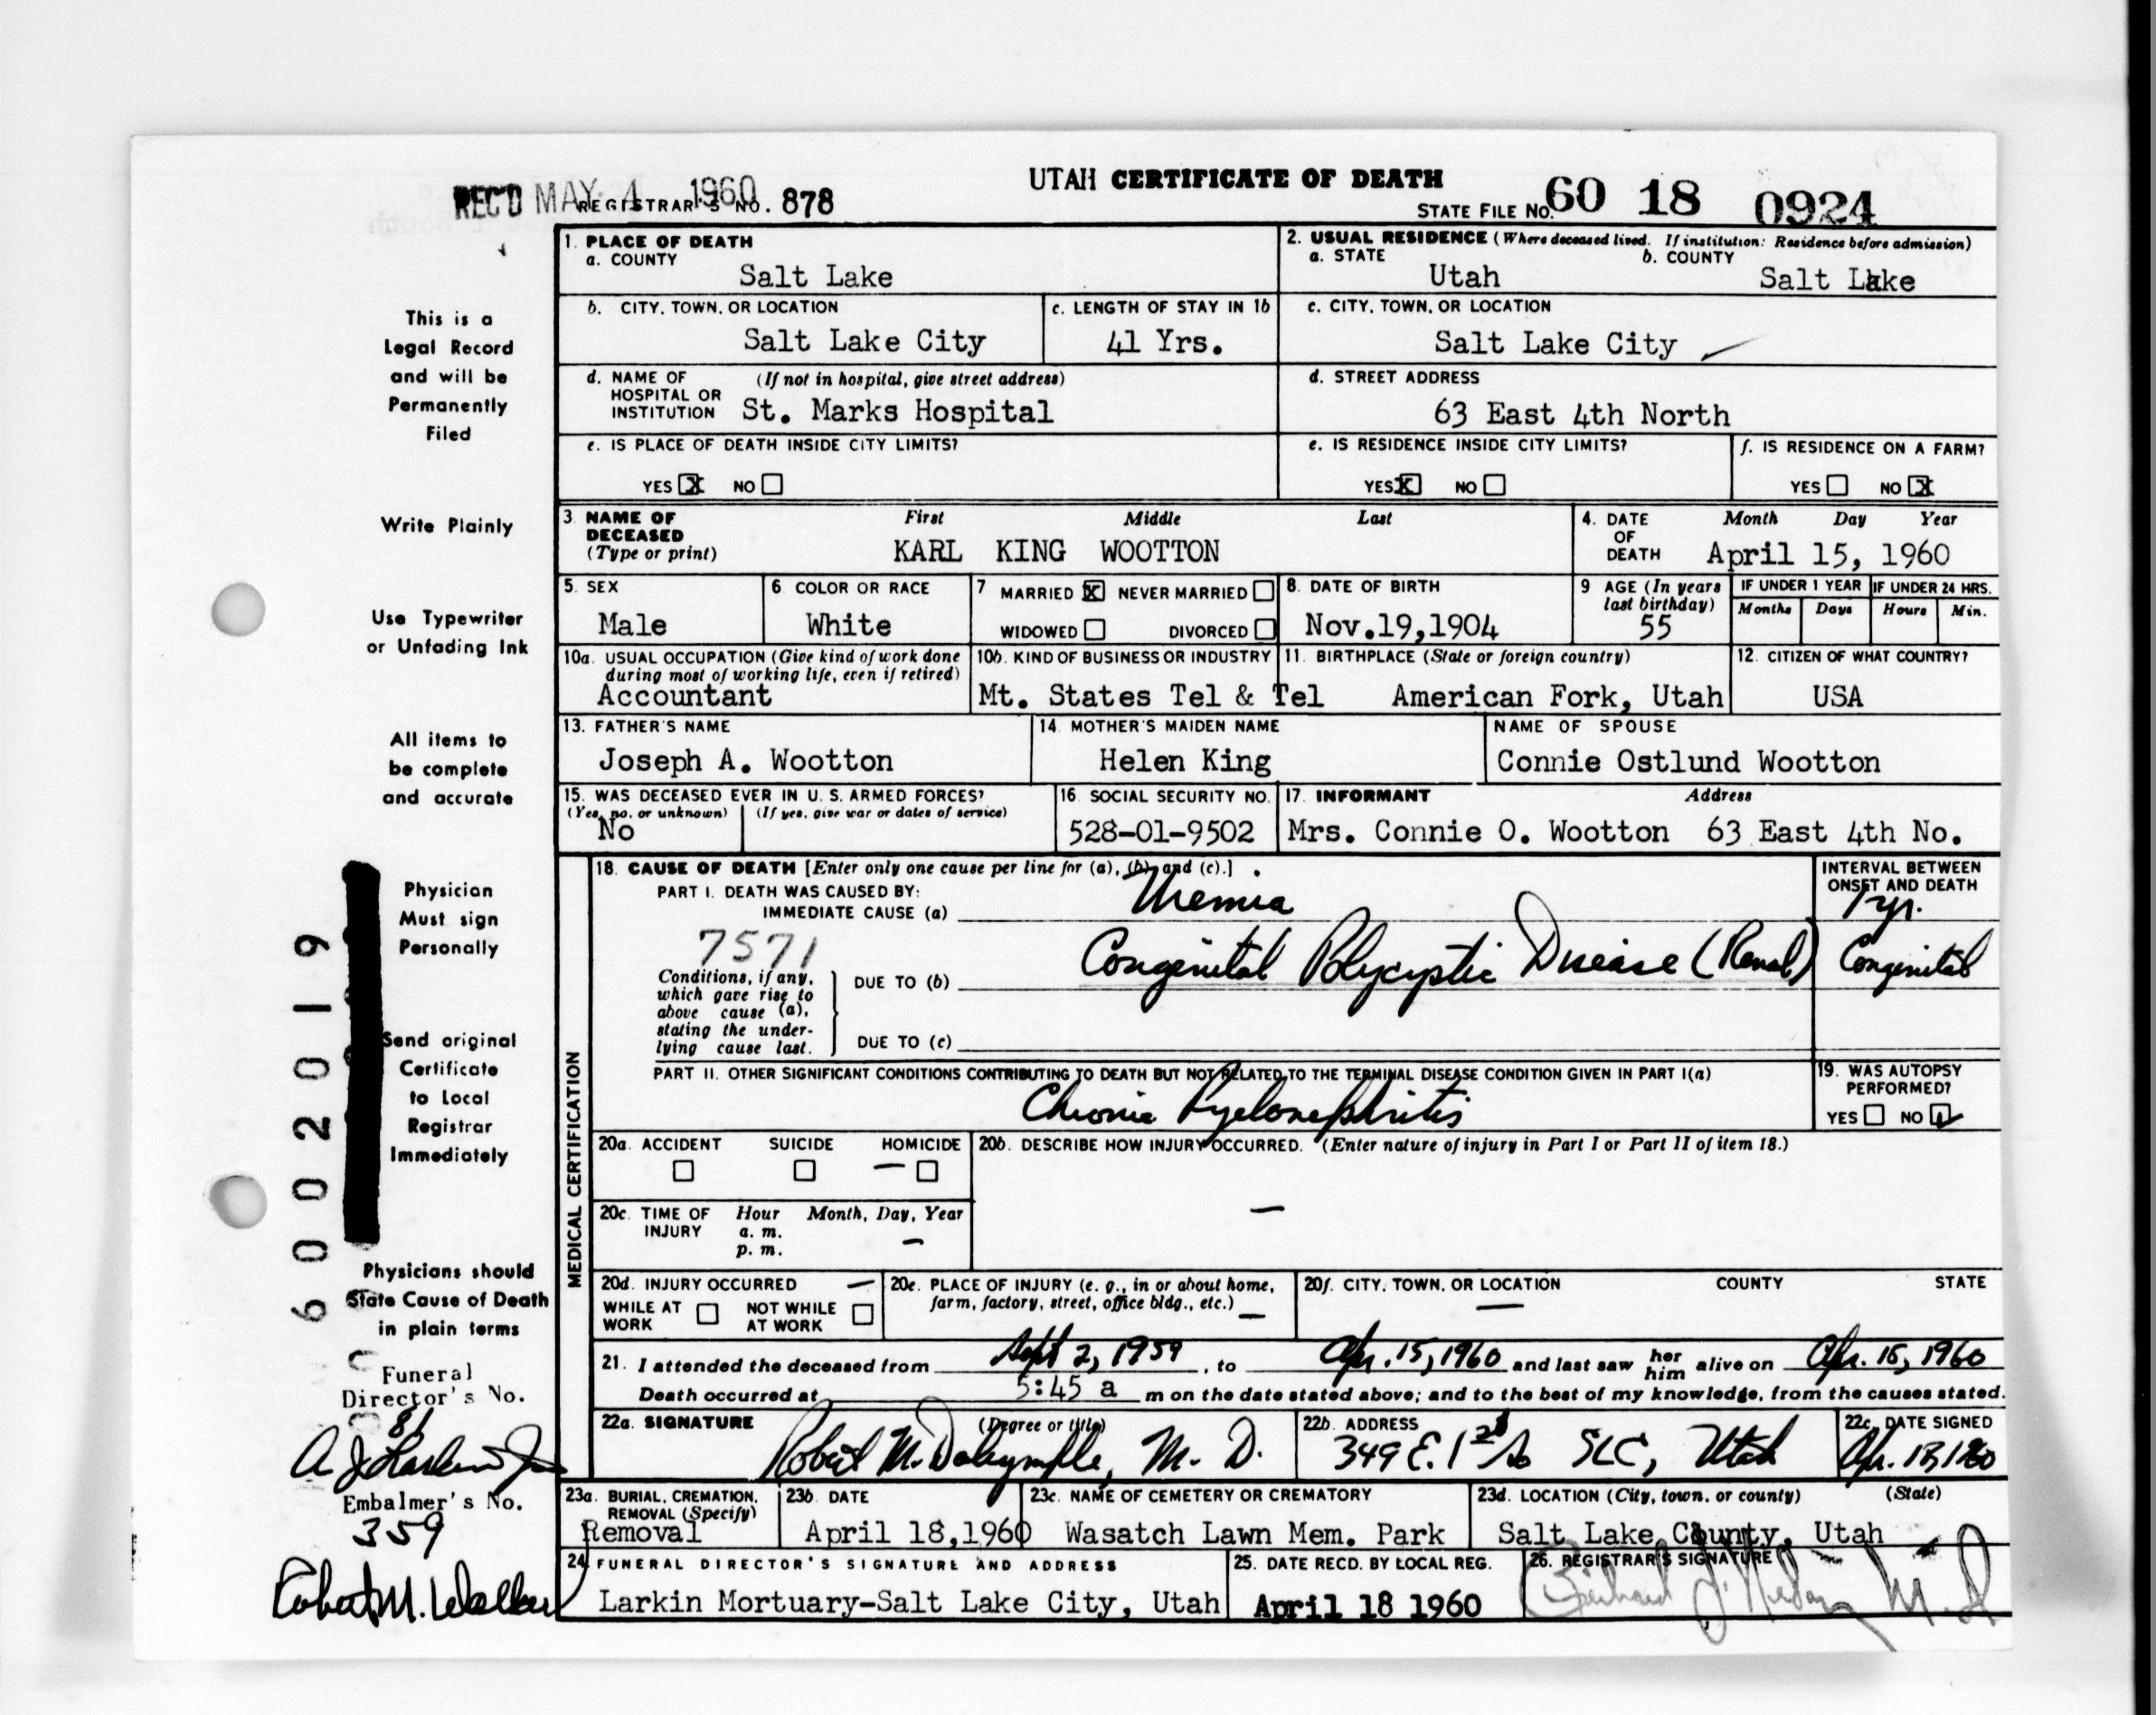 UTAH CERTIFICATE OF DEATH
REC'D MAY 4 1960 REGISTRAR'S NO. 878
STATE FILE NO. 60 18 0924
This is a
Legal Record
and will be
Permanently
Filed
Write Plainly
Use Typewriter
or Unfading Ink
All items to
be complete
and accurate
Physician
Must sign
Personally
Send original
Certificate
to Local
Registrar
Immediately
Physicians should
State Cause of Death
in plain terms
Funeral
Director's No.
81
Embalmer's No.
359
6002019
1. PLACE OF DEATH
a. COUNTY
Salt Lake
2. USUAL RESIDENCE (Where deceased lived. If institution: Residence before admission)
a. STATE b. COUNTY
Utah Salt Lake
b. CITY, TOWN, OR LOCATION
Salt Lake City
c. LENGTH OF STAY IN 1b
41 Yrs.
c. CITY, TOWN, OR LOCATION
Salt Lake City
d. NAME OF (If not in hospital, give street address)
HOSPITAL OR
INSTITUTION St. Marks Hospital
d. STREET ADDRESS
63 East 4th North
e. IS PLACE OF DEATH INSIDE CITY LIMITS?
YES X NO
e. IS RESIDENCE INSIDE CITY LIMITS?
YES X NO
f. IS RESIDENCE ON A FARM?
YES NO X
3 NAME OF First Middle Last
DECEASED
(Type or print) KARL KING WOOTTON
4. DATE Month Day Year
OF
DEATH April 15, 1960
5. SEX
Male
6 COLOR OR RACE
White
7 MARRIED X NEVER MARRIED
WIDOWED DIVORCED
8. DATE OF BIRTH
Nov.19,1904
9 AGE (In years
last birthday)
55
IF UNDER 1 YEAR IF UNDER 24 HRS.
Months Days Hours Min.
10a. USUAL OCCUPATION (Give kind of work done
during most of working life, even if retired)
Accountant
10b. KIND OF BUSINESS OR INDUSTRY
Mt. States Tel & Tel
11. BIRTHPLACE (State or foreign country)
American Fork, Utah
12. CITIZEN OF WHAT COUNTRY?
USA
13. FATHER'S NAME
Joseph A. Wootton
14. MOTHER'S MAIDEN NAME
Helen King
NAME OF SPOUSE
Connie Ostlund Wootton
15. WAS DECEASED EVER IN U. S. ARMED FORCES?
(Yes, no, or unknown) (If yes, give war or dates of service)
No
16. SOCIAL SECURITY NO.
528-01-9502
17. INFORMANT Address
Mrs. Connie O. Wootton 63 East 4th No.
MEDICAL CERTIFICATION
18. CAUSE OF DEATH [Enter only one cause per line for (a), (b), and (c).]
PART I. DEATH WAS CAUSED BY:
IMMEDIATE CAUSE (a) Uremia
INTERVAL BETWEEN
ONSET AND DEATH
1 yr.
7571
Conditions, if any,
which gave rise to
above cause (a),
stating the under-
lying cause last.
DUE TO (b) Congenital Polycystic Disease (Renal) Congenital
DUE TO (c)
PART II. OTHER SIGNIFICANT CONDITIONS CONTRIBUTING TO DEATH BUT NOT RELATED TO THE TERMINAL DISEASE CONDITION GIVEN IN PART I(a)
Chronic Pyelonephritis
19. WAS AUTOPSY
PERFORMED?
YES NO
20a. ACCIDENT SUICIDE HOMICIDE
20b. DESCRIBE HOW INJURY OCCURRED. (Enter nature of injury in Part I or Part II of item 18.)
20c. TIME OF Hour Month, Day, Year
INJURY a. m.
p. m.
20d. INJURY OCCURRED
WHILE AT NOT WHILE
WORK AT WORK
20e. PLACE OF INJURY (e. g., in or about home,
farm, factory, street, office bldg., etc.)
20f. CITY, TOWN, OR LOCATION COUNTY STATE
21. I attended the deceased from Sept 2, 1959, to Apr. 15, 1960 and last saw her him alive on Apr. 15, 1960
Death occurred at 5:45 a m on the date stated above; and to the best of my knowledge, from the causes stated.
22a. SIGNATURE (Degree or title)
Robert M. Dalrymple, M. D.
22b. ADDRESS
349 E. 1st So SLC, Utah
22c. DATE SIGNED
23a. BURIAL, CREMATION,
REMOVAL (Specify)
Removal
23b. DATE
April 18,1960
23c. NAME OF CEMETERY OR CREMATORY
Wasatch Lawn Mem. Park
23d. LOCATION (City, town, or county) (State)
Salt Lake County, Utah
24 FUNERAL DIRECTOR'S SIGNATURE AND ADDRESS
Larkin Mortuary-Salt Lake City, Utah
25. DATE RECD. BY LOCAL REG.
April 18 1960
26. REGISTRAR'S SIGNATURE